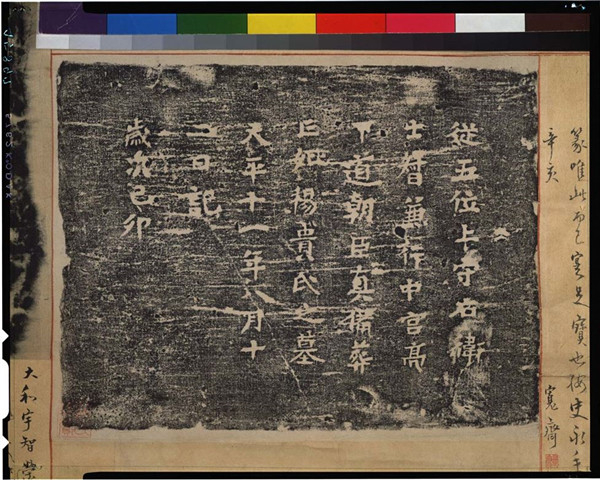 篆唯此而已寔足寶也按史永手
辛亥 寬齋
從五位上守右衛
士督兼行中宮亮
下道朝臣真備葬
亡妣楊貴氏之墓
天平十一年八月十
二日記
歲次己卯
大和宇智榮